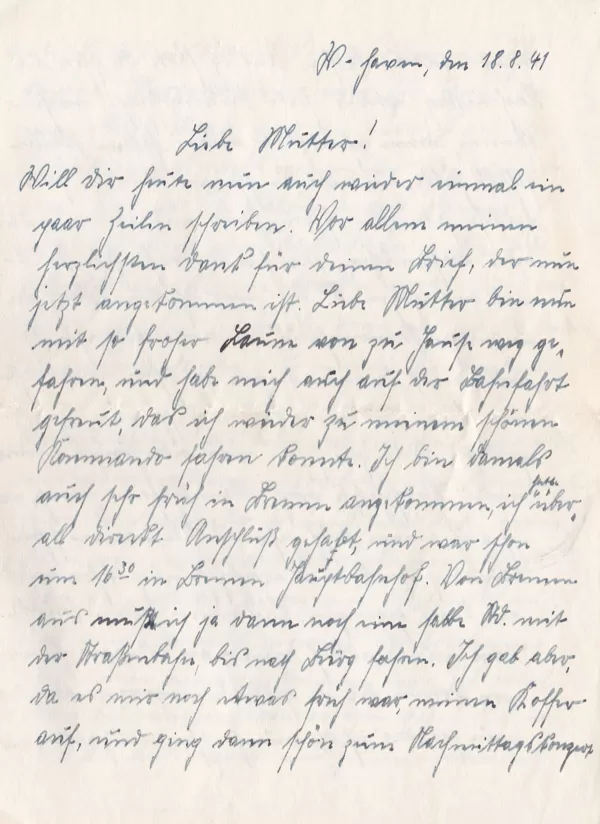 W-haven, den 18.8.41
Liebe Mutter!
Will dir heute nun auch wieder einmal ein
paar Zeilen schreiben. Vor allem meinen
herzlichsten Dank für deinen Brief, der nun
jetzt angekommen ist. Liebe Mutter bin nun
mit so froher Laune von zu Hause weg ge-
fahren, und habe mich auch auf der Bahnfahrt
gefreut, das ich wieder zu meinem schönen
Kommando fahren konnte. Ich bin damals
auch sehr früh in Bremen angekommen, ich hatte über-
all direkt Anschluß gehabt, und war schon
um 16 30 in Bremen Hauptbahnhof. Von Bremen
aus muß ich ja dann noch eine halbe Std. mit
der Straßenbahn, bis nach Burg fahren. Ich gab aber,
da es mir noch etwas früh war, meinen Koffer
auf, und ging dann schön zum Nachmittagskonzert